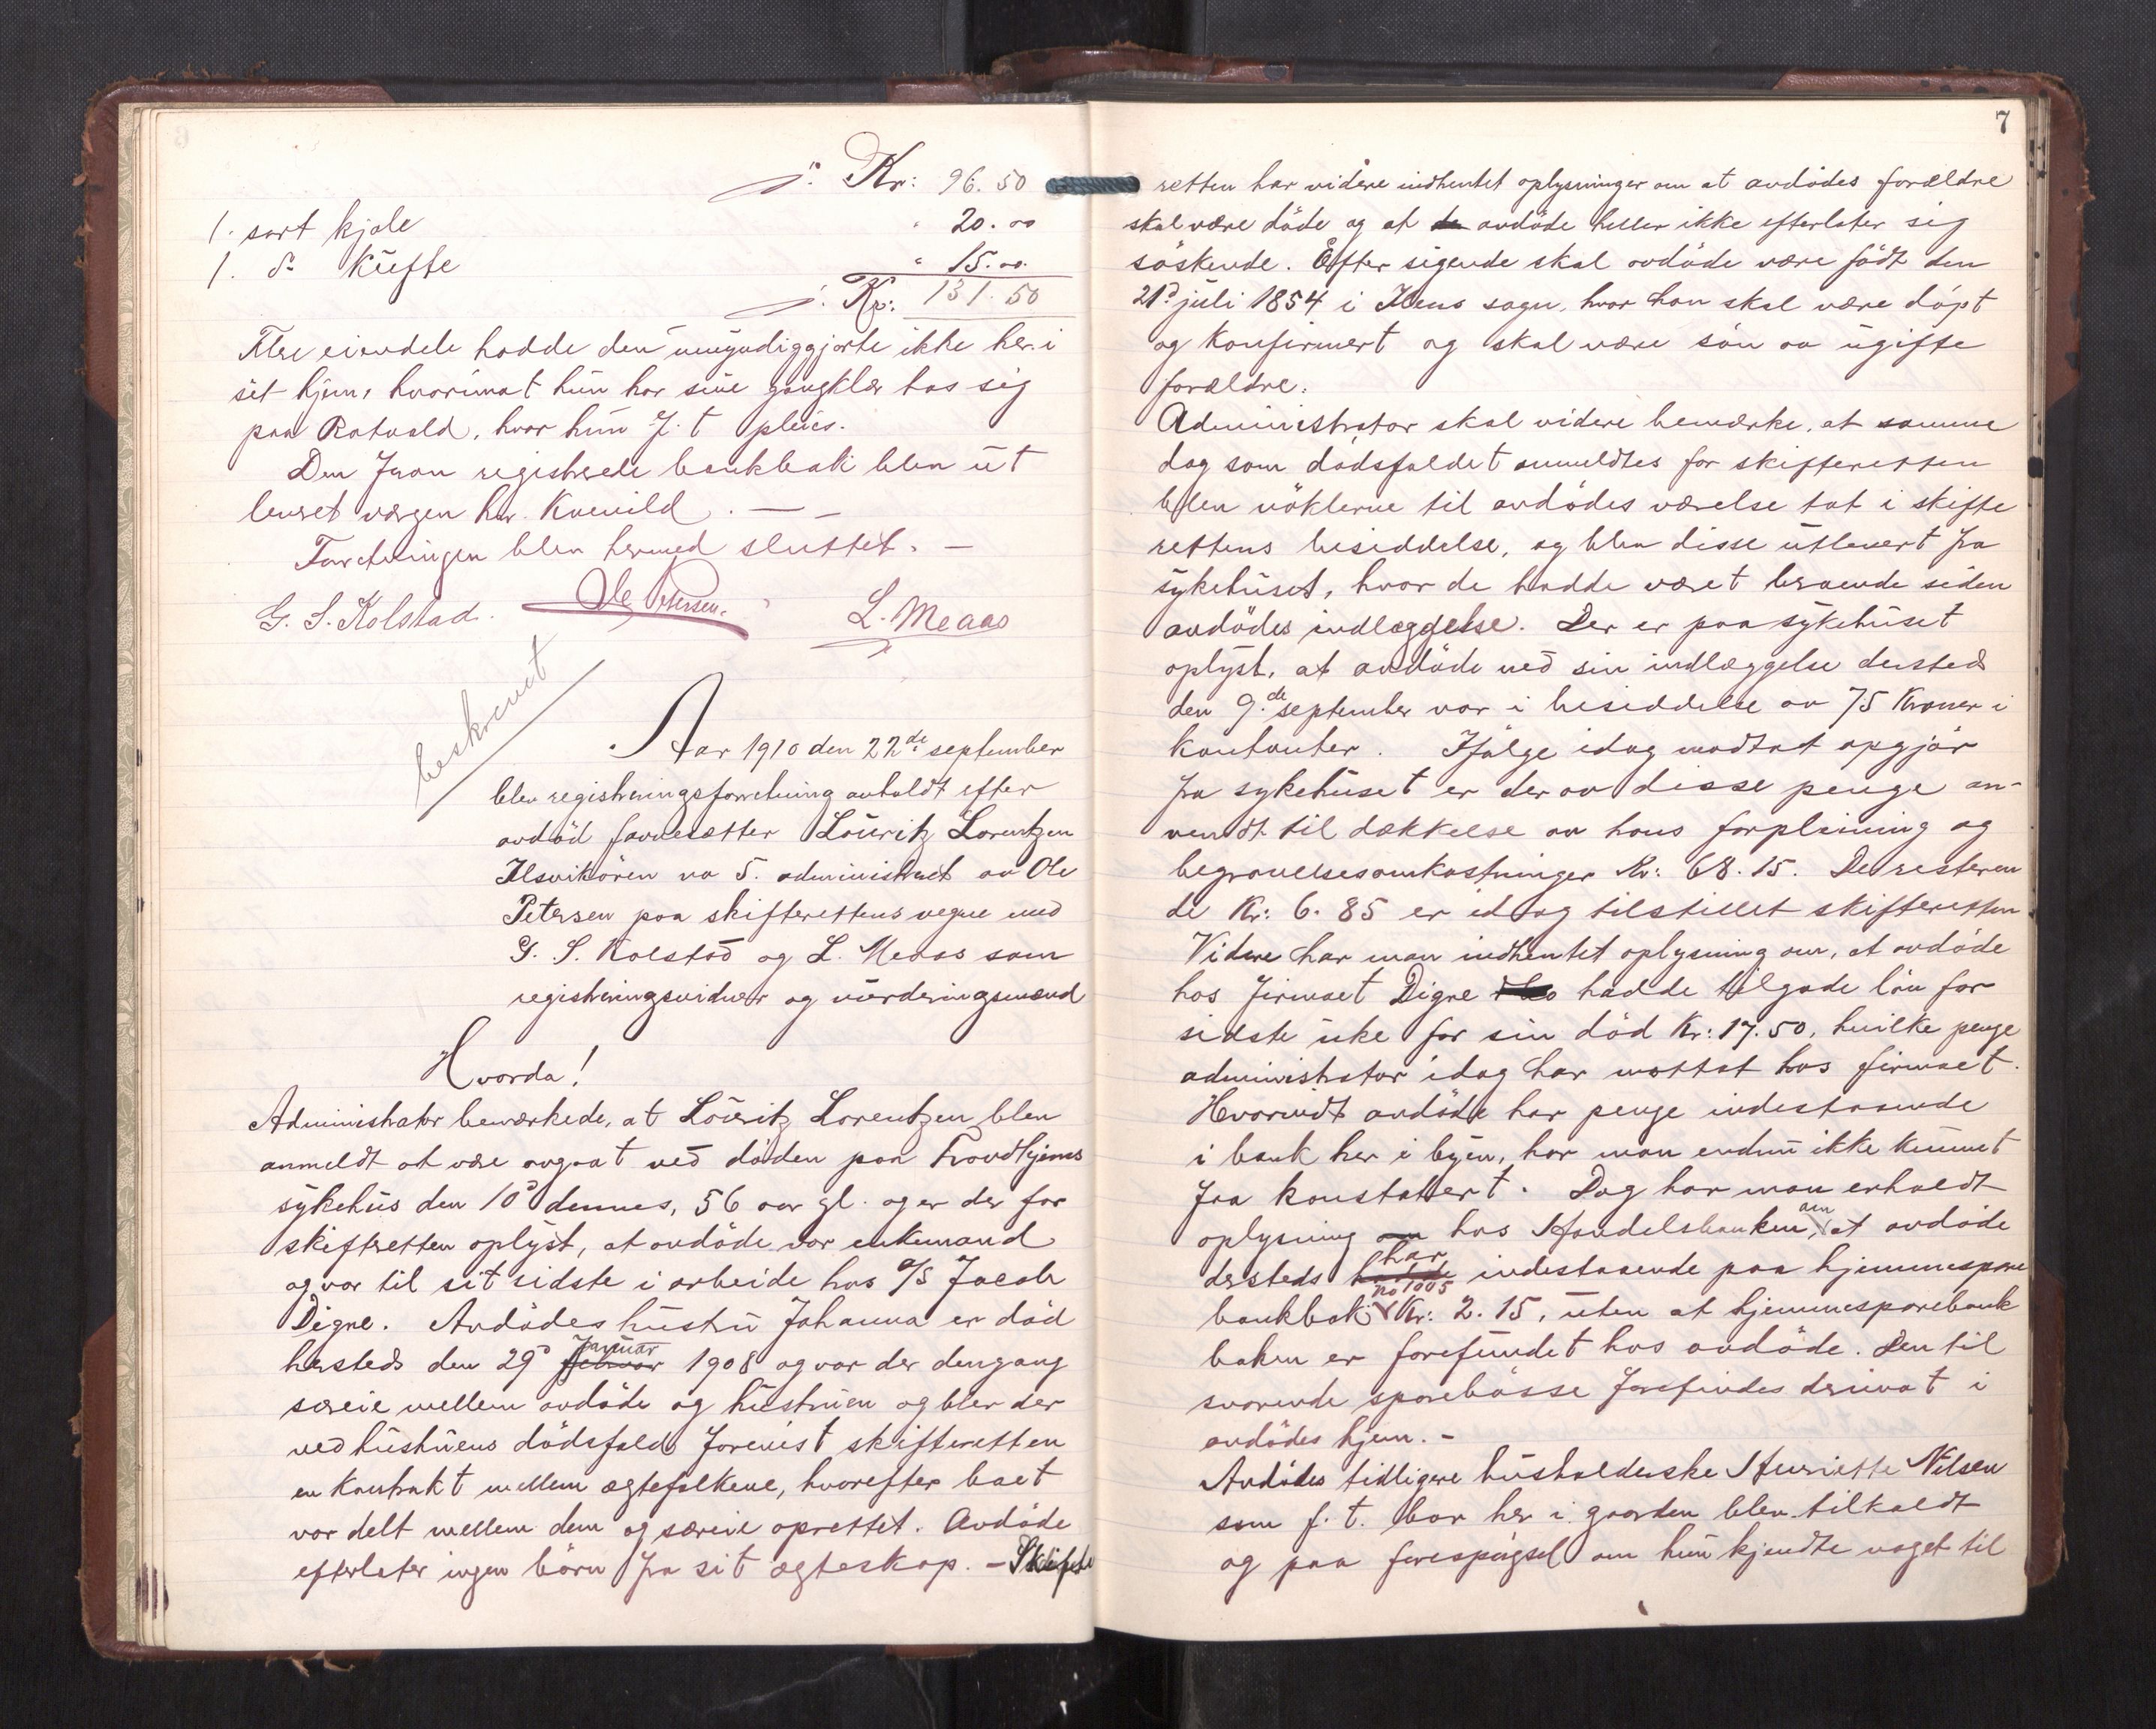 j: Kr: 96.50
1. sort kjole " 20.00
1. do kufte " 15.00
j. Kr: 131.50
Flere eiendele hadde den umyndiggjorte ikke her i
sit hjem, hvorimot hun har sine gangklær hos sig
paa Rotvold, hvor hun f. t pleies.
Den foran registrerede bankbok blev ut
leveret værgen hr. Kvenild. —
Forretningen blev hermed sluttet. —
G. S. Kolstad. Ole Petersen. L. Meaas
beskrevet
Aar 1910 den 22de september
blev registreringsforretning avholdt efter
avdød favnesætter Louritz Lorentzen
Ilsvikøren no 5. administrert av Ole
Petersen paa skifterettens vegne med
G. S. Kolstad og L. Meaas som
registreringsvidner og vurderingsmænd
Hvorda!
Administrator bemærkede, at Louritz Lorentzen blev
anmeldt at være avgaat ved døden paa Trondhjems
sykehus den 10d dennes, 56 aar gl. og er der for
skifteretten oplyst, at avdøde var enkemand
og var til sit sidste i arbeide hos A/S Jacob
Digre. Avdødes hustru Johanna er død
hersteds den 29d februar januar 1908 og var der dengang
særeie mellem avdøde og hustruen og blev der
ved hustruens dødsfald forevist skifteretten
en kontrakt mellem ægtefolkene, hvorefter boet
var delt mellem dem og særeie oprettet. Avdøde
efterlater ingen børn fra sit ægteskap. — Skifte
7
retten har videre indhentet oplysninger om at avdødes forældre
skal være døde og at de avdøde heller ikke efterlater sig
søskende. Efter sigende skal avdøde være født den
21d juli 1854 i Ilens sogn, hvor han skal være døpt
og konfirmert og skal være søn av ugifte
forældre.
Administrator skal videre bemærke, at samme
dag som dødsfaldet anmeldtes for skifteretten
blev nøklerne til avdødes værelse tat i skifte
rettens besiddelse, og blev disse utlevert fra
sykehuset, hvor de hadde været beroende siden
avdødes indlæggelse. Der er paa sykehuset
oplyst, at avdøde ved sin indlæggelse dersteds
den 9.de september var i besiddelse av 75 Kroner i
kontanter. Ifølge idag modtat opgjør
fra sykehuset er der av disse penge an-
vendt til dækkelse av hans forpleining og
begravelsesomkostninger Kr: 68.15. De resteren
de Kr: 6.85 er idag tilstillet skifteretten
Videre har man indhentet oplysning om, at avdøde
hos firmaet Digre hadde tilgode løn for
sidste uke før sin død Kr: 17.50, hvilke penge
administrator idag har mottat hos firmaet.
Hvorvidt avdøde har penge indestaaende
i bank her i byen, har man endnu ikke kunnet
faa konstatert. Dog har man erholdt
oplysning om hos Handelsbanken, om at avdøde
dersteds hadde har indestaaende paa hjemmespare
bankbok no 1005 Kr: 2.15, uten at hjemmesparebank
boken er forefundet hos avdøde. Den til
svarende sparebøsse forefindes derimot i
avdødes hjem. —
Avdødes tidligere husholderske Henriette Nilsen
som f. t. bor her i gaarden blev tilkaldt
og paa forespørgsel om hun kjendte noget til